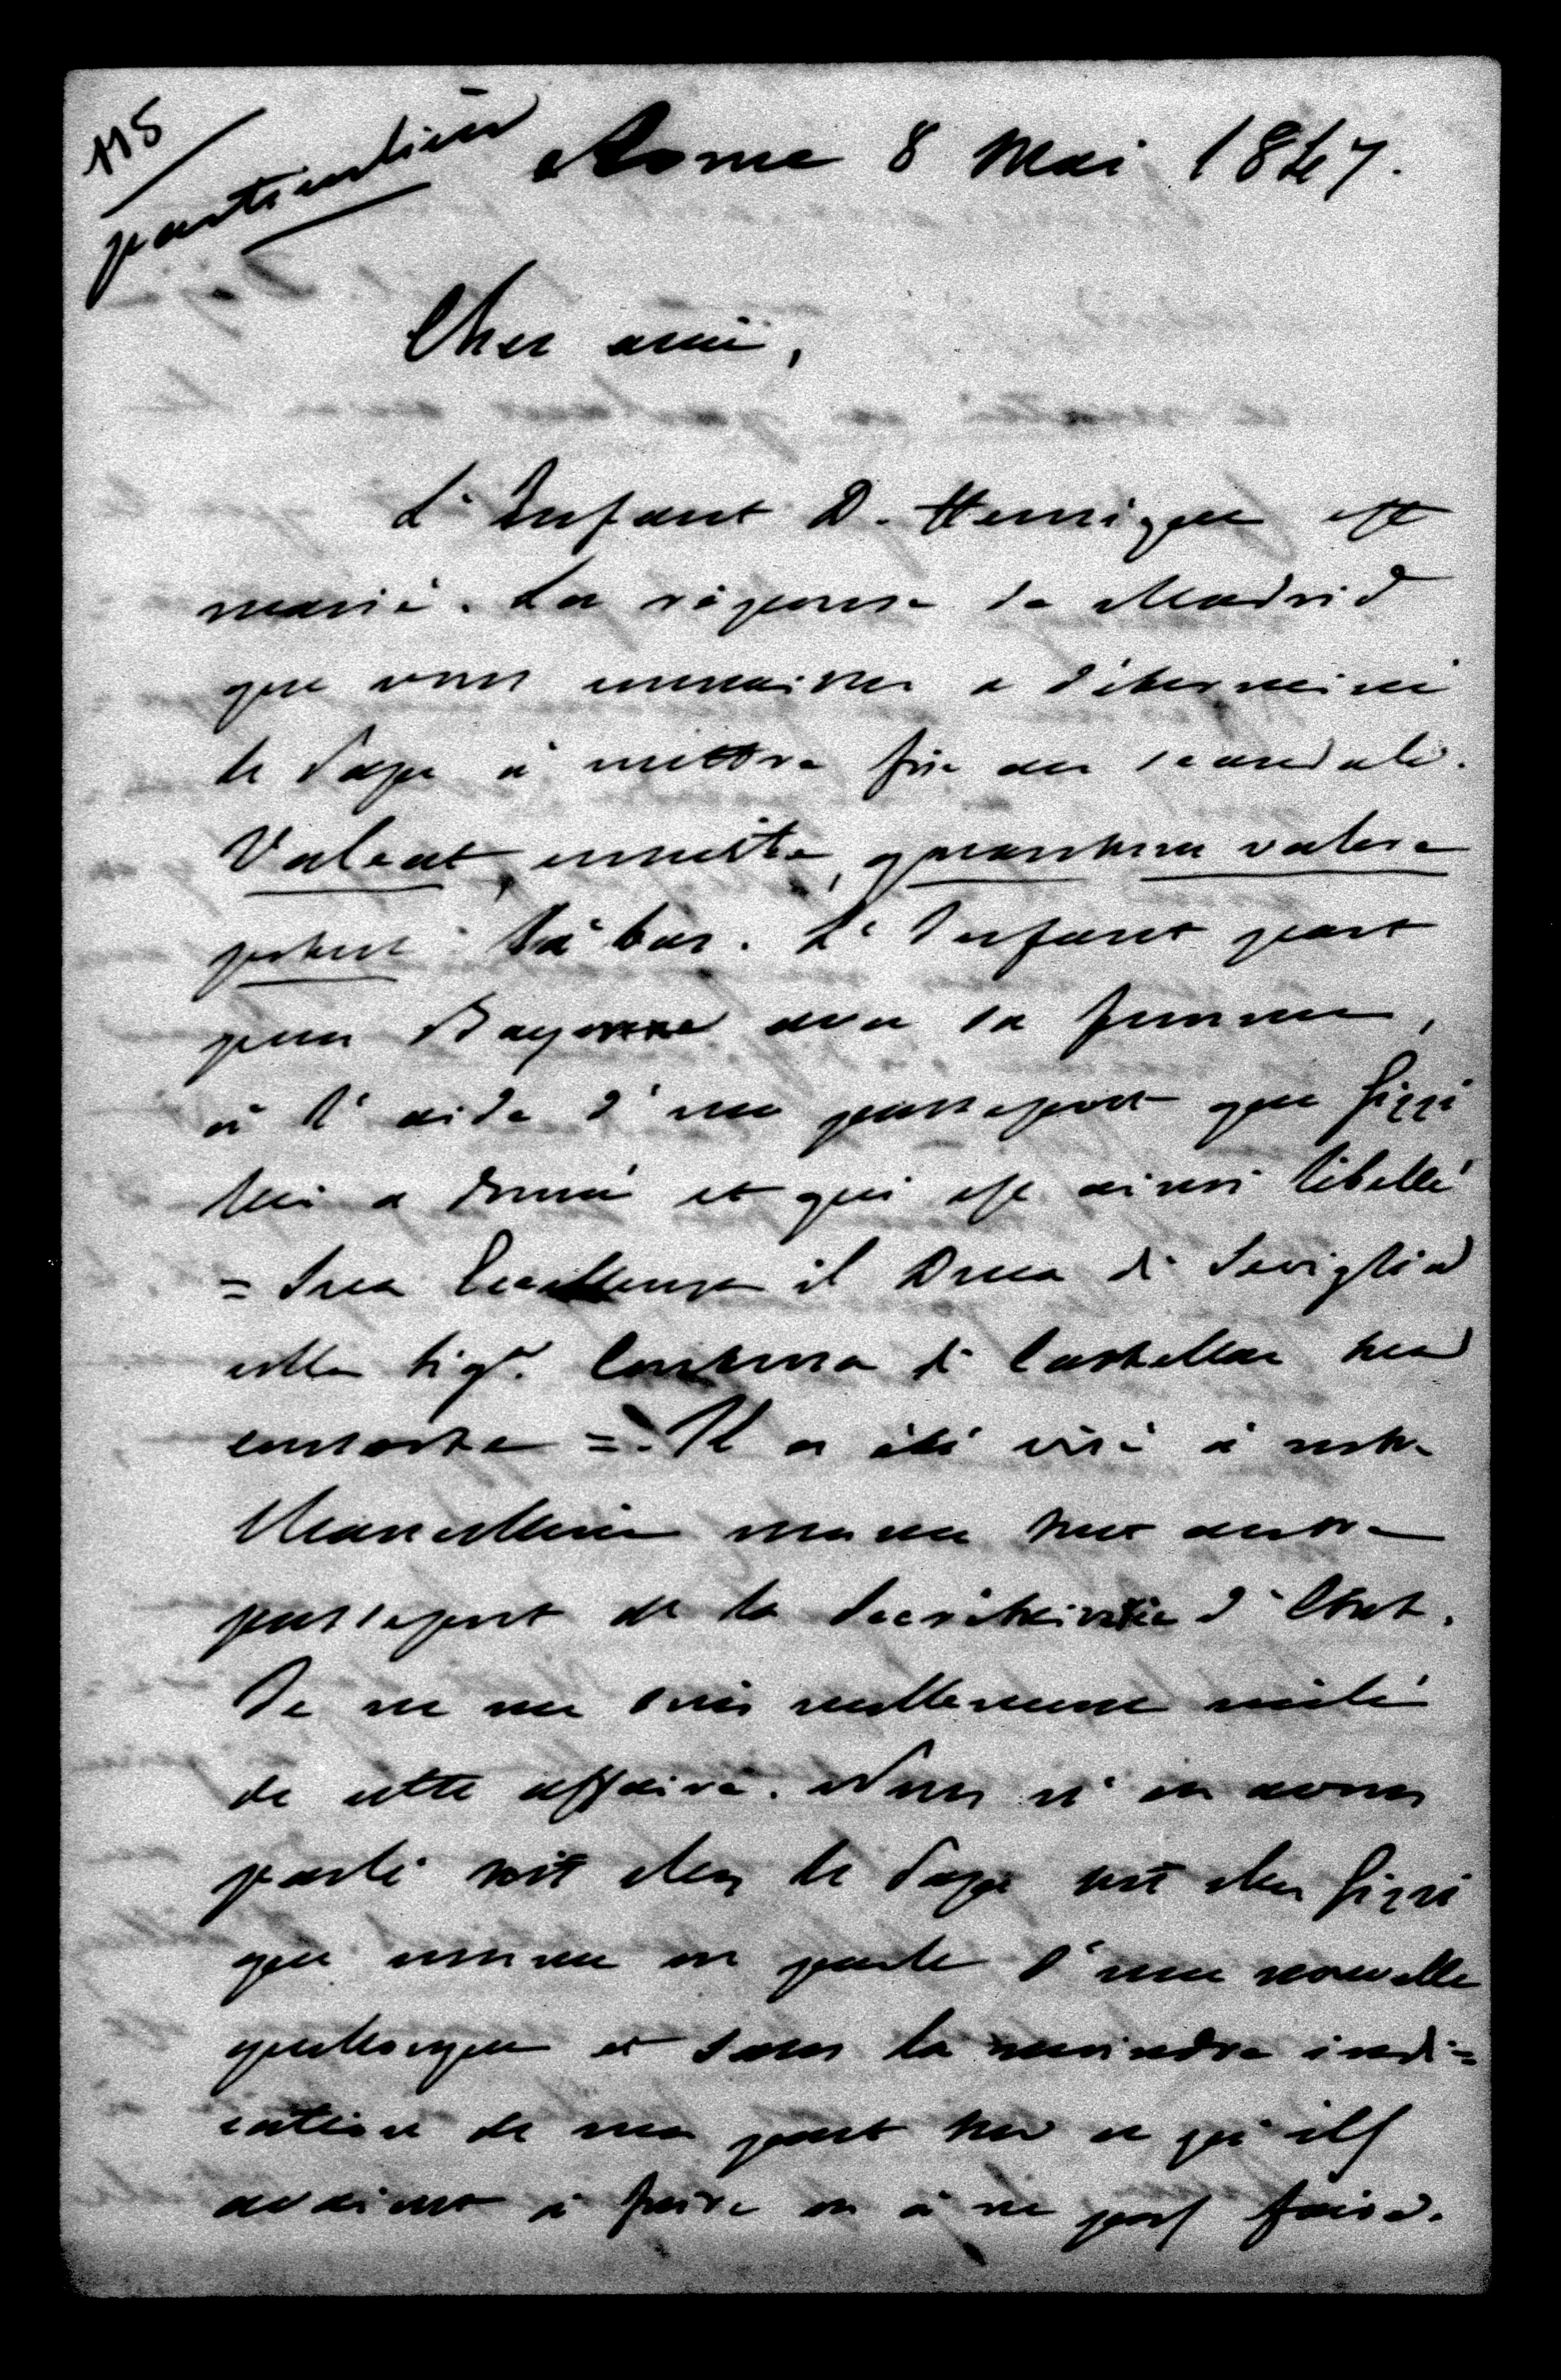 115
particulière
Rome 8 Mai 1847.
Cher ami,
L'Infant D. Henrique est
marié. La réponse de Madrid
que vous connaissez a déterminé
le Pape à mettre fin au scandale.
Valeat, ensuite, quantum valere
potest là bas. L'Infant part
pour Bayonne avec sa femme,
à l'aide d'un passeport que Gizzi
lui a donné et qui est ainsi libellé
= Sua Eccellenza il Duca di Siviglia
colla Sigra. Contessa di Castellar sua
consorte =. Il a été visé à notre
Chancellerie comme tout autre
passeport de la Secrétairerie d'Etat.
Je ne me suis nullement mêlé
de cette affaire. Nous n'en avons
parlé soit chez le Pape soit chez Gizzi
que comme on parle d'une nouvelle
quelconque et sans la moindre indi=
cation de ma part sur ce qu'ils
avaient à faire ou à ne pas faire.